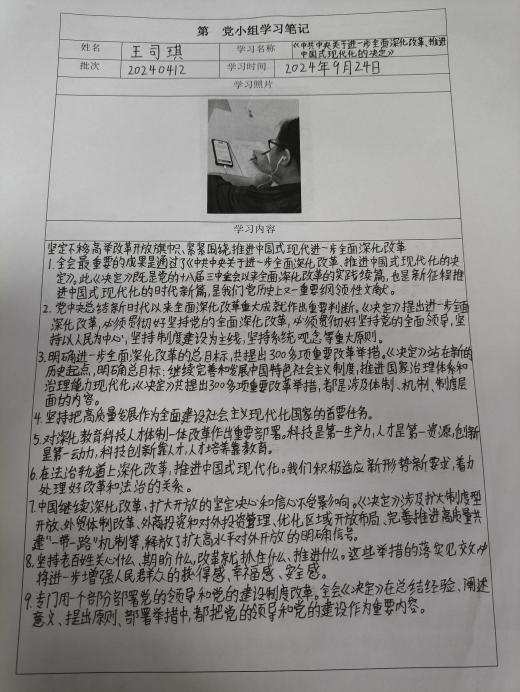 第 党小组学习笔记
姓名 王司琪 学习名称 《中共中央关于进一步全面深化改革、推进
中国式现代化的决定》
批次 20240412 学习时间 2024年9月24日
学习照片
学习内容
坚定不移高举改革开放旗帜、紧紧围绕推进中国式现代进一步全面深化改革
1.全会最重要的成果是通过了《中共中央关于进一步全面深化改革、推进中国式现代化的决
定》。此《决定》既是党的十八届三中全会以来全面深化改革的实践续篇,也是新征程推
进中国式现代化的时代新篇,是我们党历史上又一重要纲领性文献。
2.党中央总结新时代以来全面深化改革重大成就作出重要判断。《决定》提出进一步全面
深化改革,必须贯彻好坚持党的全面深化改革,必须贯彻好坚持党的全面领导,坚
持以人民为中心,坚持制度建设为主线,坚持系统观念等重大原则。
3.明确进一步全面深化改革的总目标,共提出300多项重要改革举措。《决定》站在新的
历史起点,明确总目标:继续完善和发展中国特色社会主义制度,推进国家治理体系和
治理能力现代化;《决定》共提出300多项重要改革举措,都是涉及体制、机制、制度层
面的内容。
4.坚持把高质量发展作为全面建设社会主义现代化国家的首要任务。
5.对深化教育科技人才体制一体改革作出重要部署。科技是第一生产力,人才是第一资源,创新
是第一动力,科技创新靠人才,人才培养靠教育。
6.在法治轨道上深化改革,推进中国式现代化。我们积极适应新形势新要求,着力
处理好改革和法治的关系。
7.中国继续深化改革、扩大开放的坚定决心和信心不受影响。《决定》涉及扩大制度型
开放、外贸体制改革、外商投资和对外投资管理、优化区域开放布局、完善推进高质量共
建"一带一路"机制等,解放了扩大高水平对外开放的明确信号。
8.坚持老百姓关心什么、期盼什么,改革就抓住什么、推进什么。这些举措的落实见效必
将进一步增强人民群众的获得感、幸福感、安全感。
9.专门用一个部分部署党的领导和党的建设制度改革。全会《决定》在总结经验、阐述
意义、提出原则、部署举措中,都把党的领导和党的建设作为重要内容。